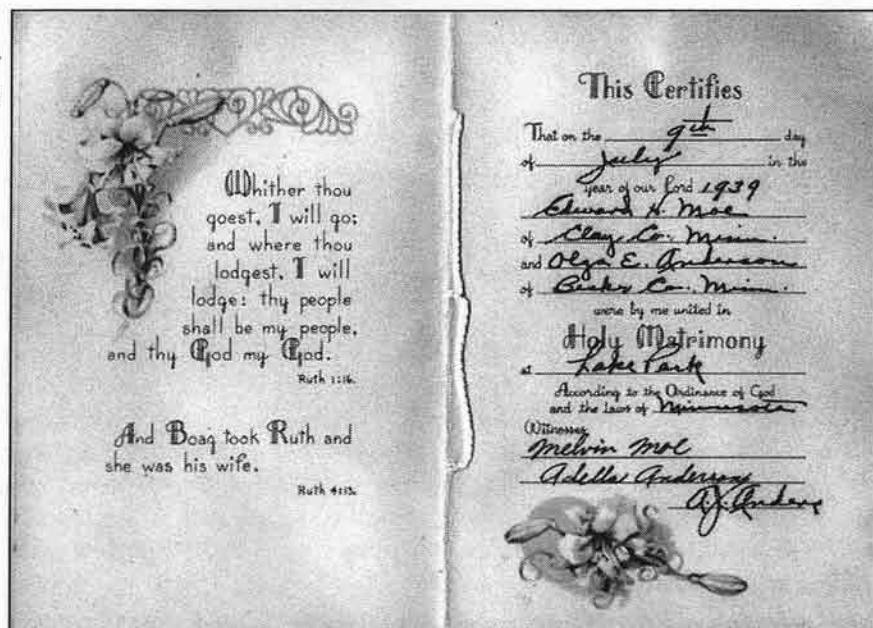 Whither thou
goest, I will go;
and where thou
lodgest, I will
lodge: thy people
shall be my people,
and thy God my God.
Ruth 1:16.
And Boaz took Ruth and
she was his wife.
Ruth 4:13.
This Certifies
That on the 9th day
of July in the
year of our Lord 1939
Edward H. Moe
of Clay Co. Minn.
and Olga E. Anderson
of Becker Co. Minn.
were by me united in
Holy Matrimony
at Lake Park
According to the Ordinance of God
and the Laws of Minnesota
Witnesses
Melvin Moe
Adella Anderson
A.J.